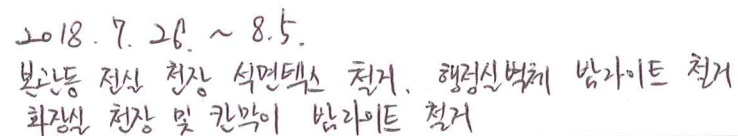 2018. 7. 26. ~ 8.5.
본관동 전실 천장 석면텍스 철거, 행정실벽체 밤라이트 철거
화장실 천장 및 칸막이 밤라이트 철거